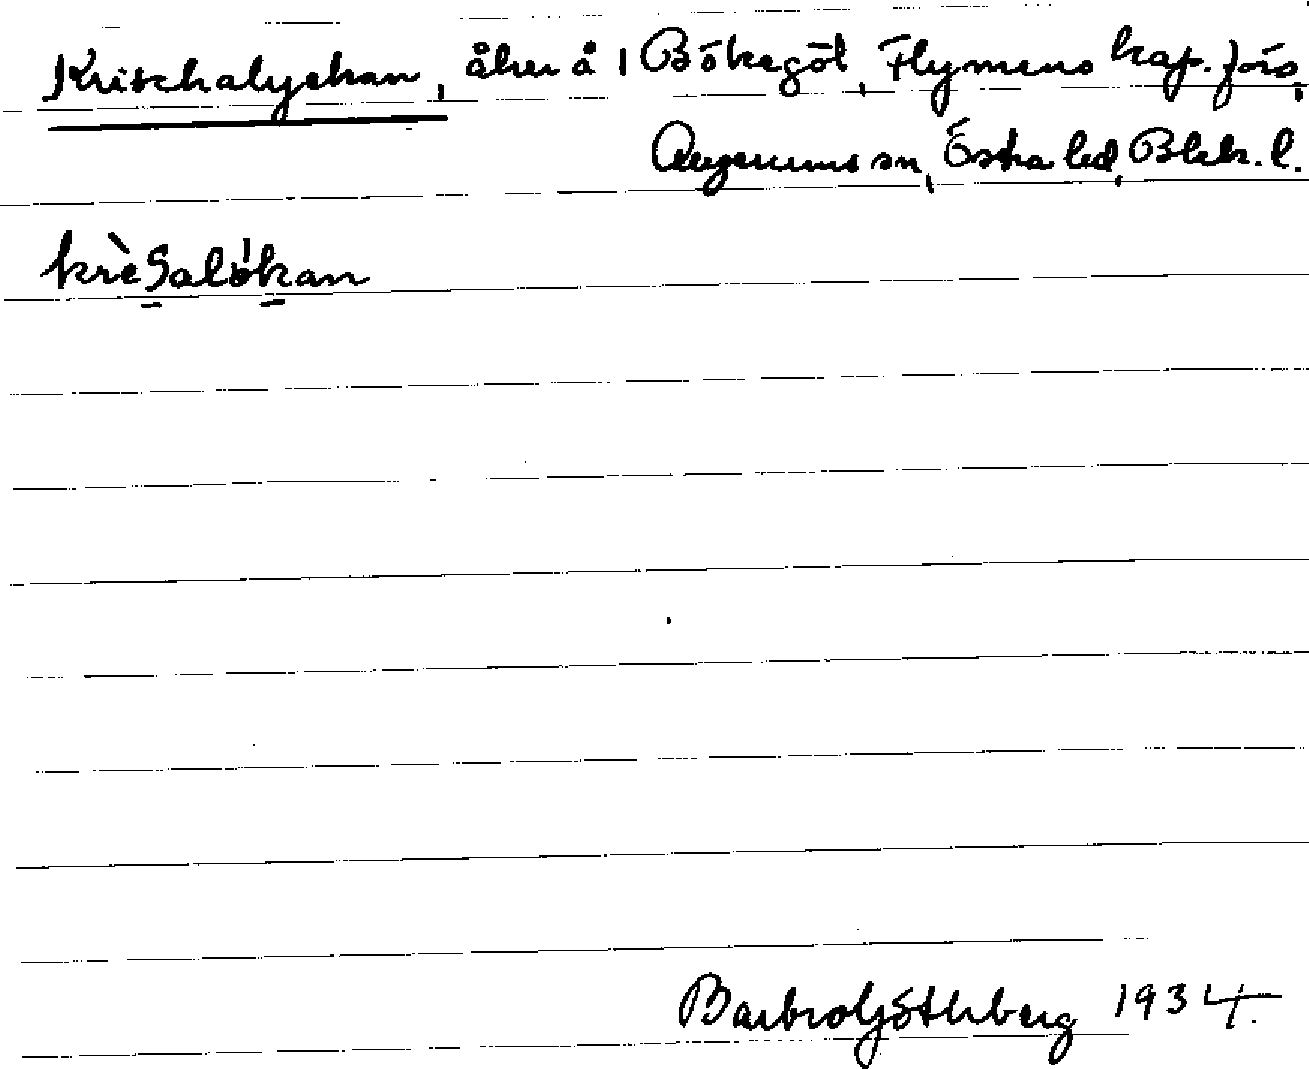 Krischalyckan, åker å 1 Bökegöl, Flymens kap. förs.,
Augerums sn, Östra hd, Blek. l.
krὲSalökan
Barbro Göthberg 1934.